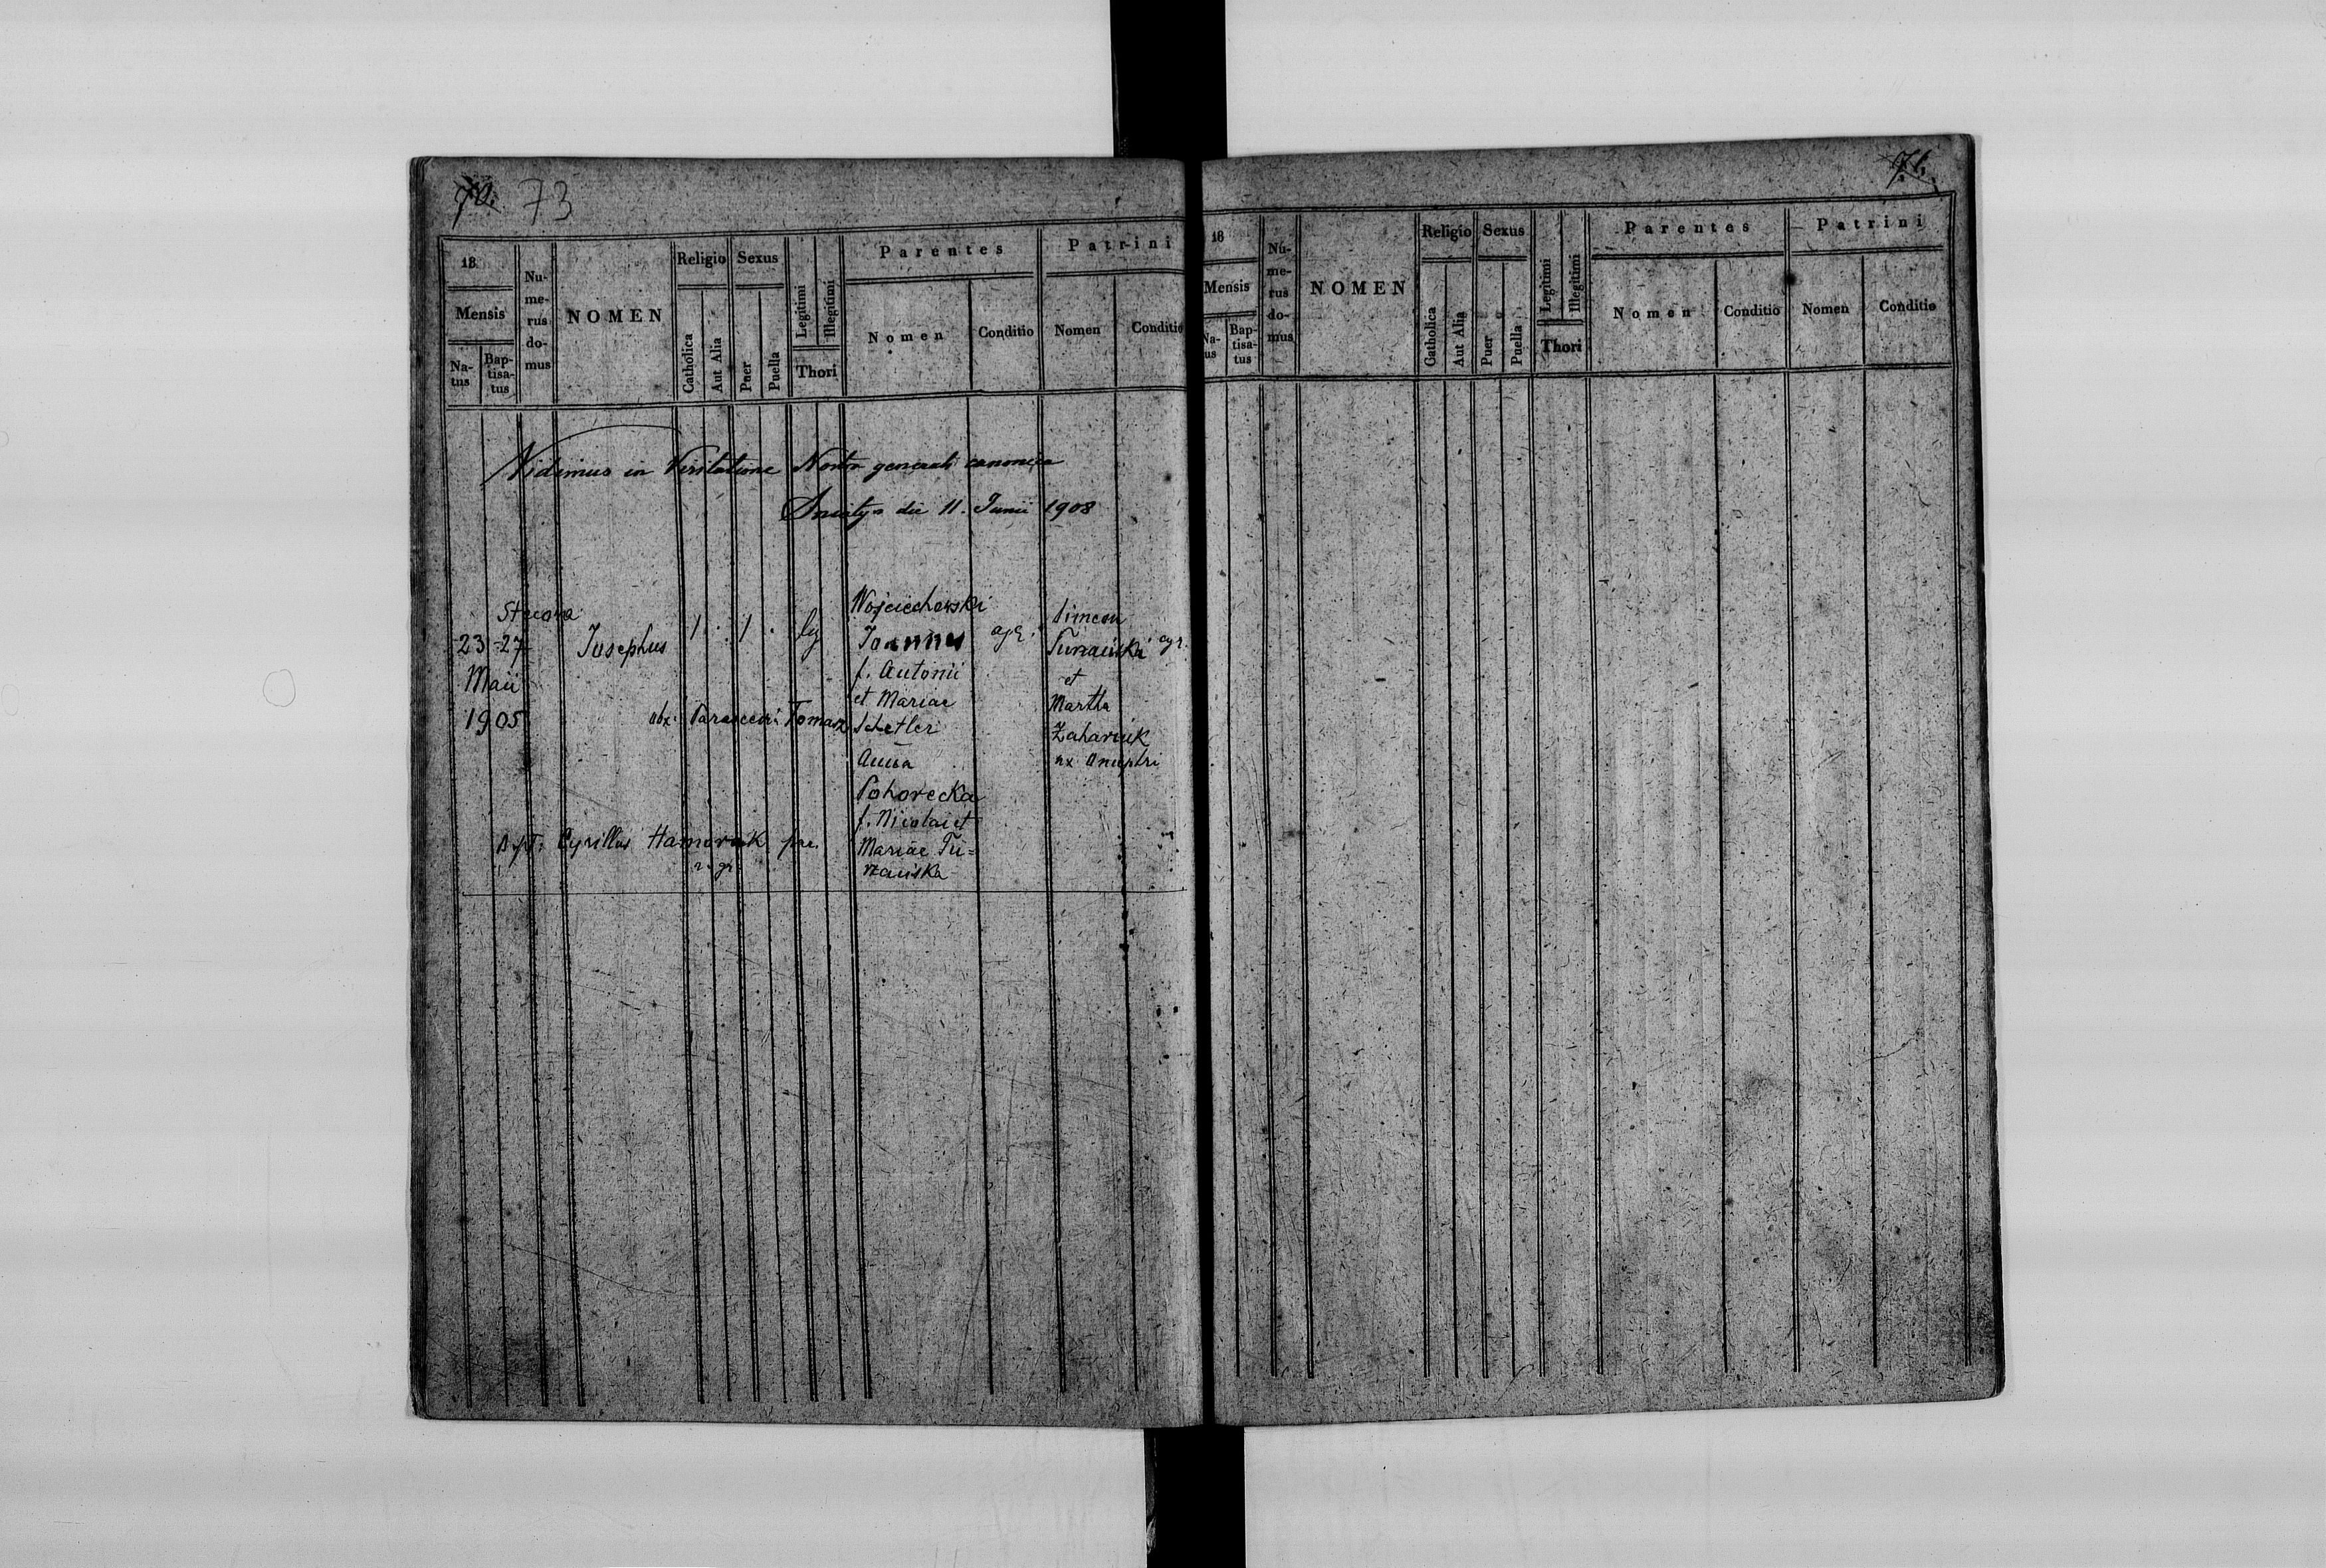 70. 73
18
Mensis
Na-
tus
Bap-
tisa-
tus
Nu-
me-
rus
do-
mus
NOMEN
Religio
Catholica
Aut Alia
Sexus
Puer
Puella
Legitimi
Illegitimi
Thori
Parentes
Nomen
Conditio
Patrini
Nomen
Conditio
Vidimus in Visitatione Nostra generali canonica
Sniatyn die 11. Junii 1908
Stecowa
23 27
Maii
1905
Josephus
1 . 1 . leg
Wojciechowski
Joannes
f. Antonii
et Mariae
Schetler
Anna
Pohorecka
f. Nicolai et
Mariae Tu=
rzańska
agr.
Simeon
Turzański agr.
et
Martha
Zahariuk
ux Onuphri
obx: Parascevia Tomasz
Bapt: Cyrillus Hamorak
r. gr.
71.
18
Mensis
Na-
us
Bap-
tisa-
tus
Nu-
me-
rus
do-
mus
NOMEN
Religio
Catholica
Aut Alia
Sexus
Puer
Puella
Legitimi
Illegitimi
Thori
Parentes
Nomen
Conditio
Patrini
Nomen
Conditio